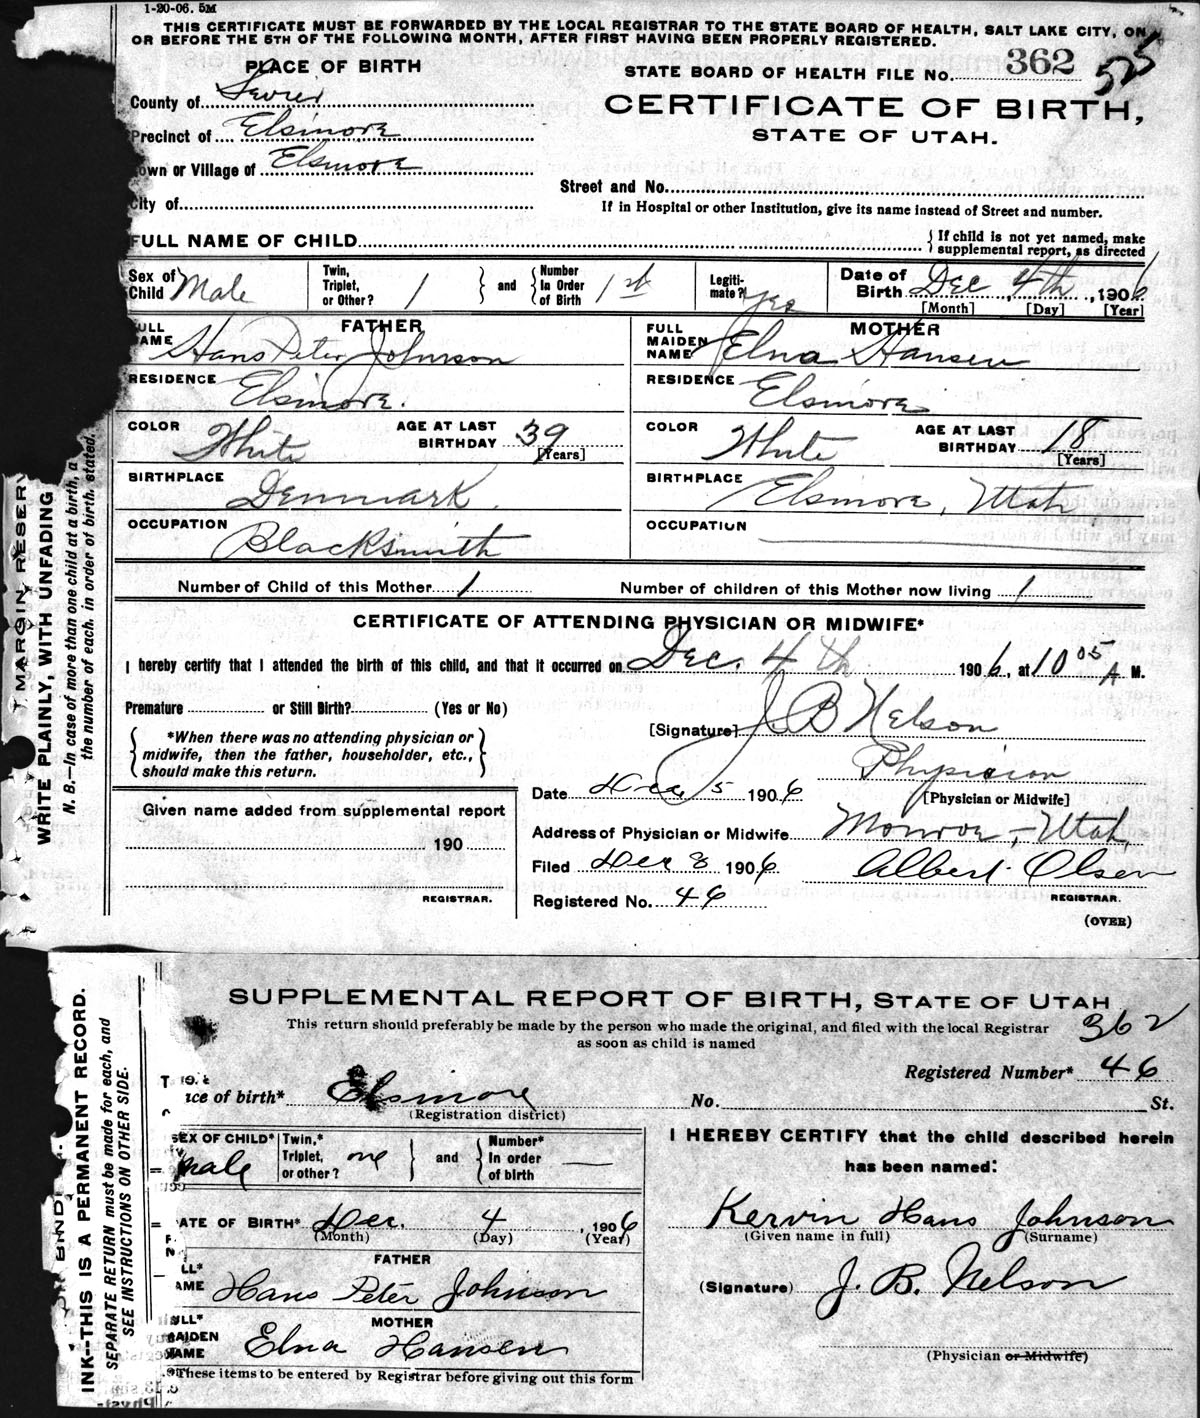 1-20-06. 5M
THIS CERTIFICATE MUST BE FORWARDED BY THE LOCAL REGISTRAR TO THE STATE BOARD OF HEALTH, SALT LAKE CITY, ON
OR BEFORE THE 5TH OF THE FOLLOWING MONTH, AFTER FIRST HAVING BEEN PROPERLY REGISTERED.
PLACE OF BIRTH
STATE BOARD OF HEALTH FILE No. 362 525
County of Sevier
CERTIFICATE OF BIRTH,
Precinct of Elsinore
STATE OF UTAH.
own or Village of Elsinore
Street and No.
City of
If in Hospital or other Institution, give its name instead of Street and number.
FULL NAME OF CHILD
{ If child is not yet named, make
supplemental report, as directed
Sex of Child Male
Twin, Triplet, or Other? 1 } and { Number In Order of Birth 1st
Legiti-mate? Yes
Date of Birth Dec 4th, 1906
[Month] [Day] [Year]
FATHER MOTHER
FULL NAME Hans Peter Johnson
FULL MAIDEN NAME Elna Hansen
RESIDENCE Elsinore.
RESIDENCE Elsinore
COLOR White AGE AT LAST BIRTHDAY 39 [Years]
COLOR White AGE AT LAST BIRTHDAY 18 [Years]
BIRTHPLACE Denmark
BIRTHPLACE Elsinore, Utah
OCCUPATION Blacksmith
OCCUPATION
Number of Child of this Mother 1 Number of children of this Mother now living 1
CERTIFICATE OF ATTENDING PHYSICIAN OR MIDWIFE*
I hereby certify that I attended the birth of this child, and that it occurred on Dec. 4th 1906, at 10 05 A M.
Premature or Still Birth? (Yes or No)
[Signature] J. B Nelson
{ *When there was no attending physician or
midwife, then the father, householder, etc.,
should make this return. }
Physician
[Physician or Midwife]
Date Dec 5 1906
Given name added from supplemental report
190
REGISTRAR.
Address of Physician or Midwife Monroe, Utah
Filed Dec 8 1906 Albert Olsen
REGISTRAR.
Registered No. 46
(OVER)
MARGIN RESERV
WRITE PLAINLY, WITH UNFADING
N. B.—In case of more than one child at a birth, a
the number of each, in order of birth, stated.
SUPPLEMENTAL REPORT OF BIRTH, STATE OF UTAH
This return should preferably be made by the person who made the original, and filed with the local Registrar
as soon as child is named
362
Registered Number* 46
ace of birth* Elsinore No. St.
(Registration district)
SEX OF CHILD* Male
Twin,* Triplet, or other? one } and { Number* In order of birth
I HEREBY CERTIFY that the child described herein
has been named:
ATE OF BIRTH* Dec. 4, 1906
(Month) (Day) (Year)
Kervin Hans Johnson
(Given name in full) (Surname)
FATHER
LL* AME Hans Peter Johnson
(Signature) J. B. Nelson
MOTHER
ULL* MAIDEN NAME Elna Hansen
(Physician or Midwife)
*These items to be entered by Registrar before giving out this form
BINDI
INK--THIS IS A PERMANENT RECORD.
SEPARATE RETURN must be made for each, and
SEE INSTRUCTIONS ON OTHER SIDE.